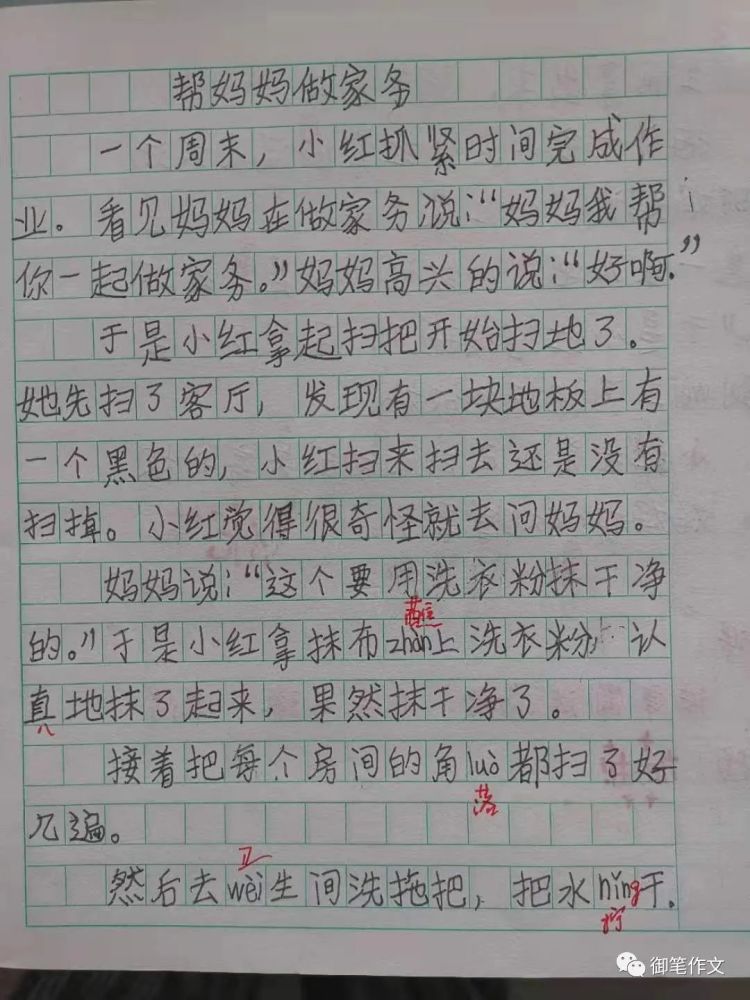 帮妈妈做家务
一个周末，小红抓紧时间完成作
业。看见妈妈在做家务说：“妈妈我帮
你一起做家务。”妈妈高兴的说：“好啊.”
于是小红拿起扫把开始扫地了。
她先扫了客厅，发现有一块地板上有
一个黑色的，小红扫来扫去还是没有
扫掉。小红觉得很奇怪就去问妈妈。
妈妈说：“这个要用洗衣粉抹干净
蘸
的。”于是小红拿抹布zhàn上洗衣粉 认
真地抹了起来，果然抹干净了。
接着把每个房间的角luò都扫了好
落
几遍。
卫
然后去wèi生间洗拖把，把水níng干.
拧
御笔作文